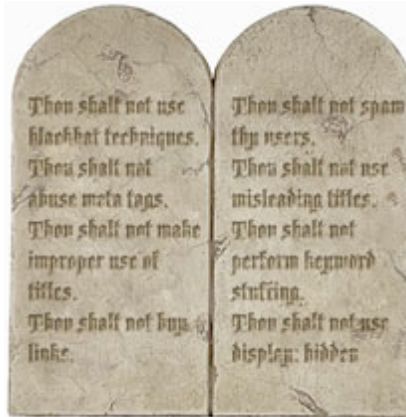 Thou shalt not use
blackhat techniques.
Thou shalt not
abuse meta tags.
Thou shalt not make
improper use of
titles.
Thou shalt not buy
links.
Thou shalt not spam
thy users.
Thou shalt not use
misleading titles.
Thou shalt not
perform keyword
stuffing.
Thou shalt not use
display: hidden